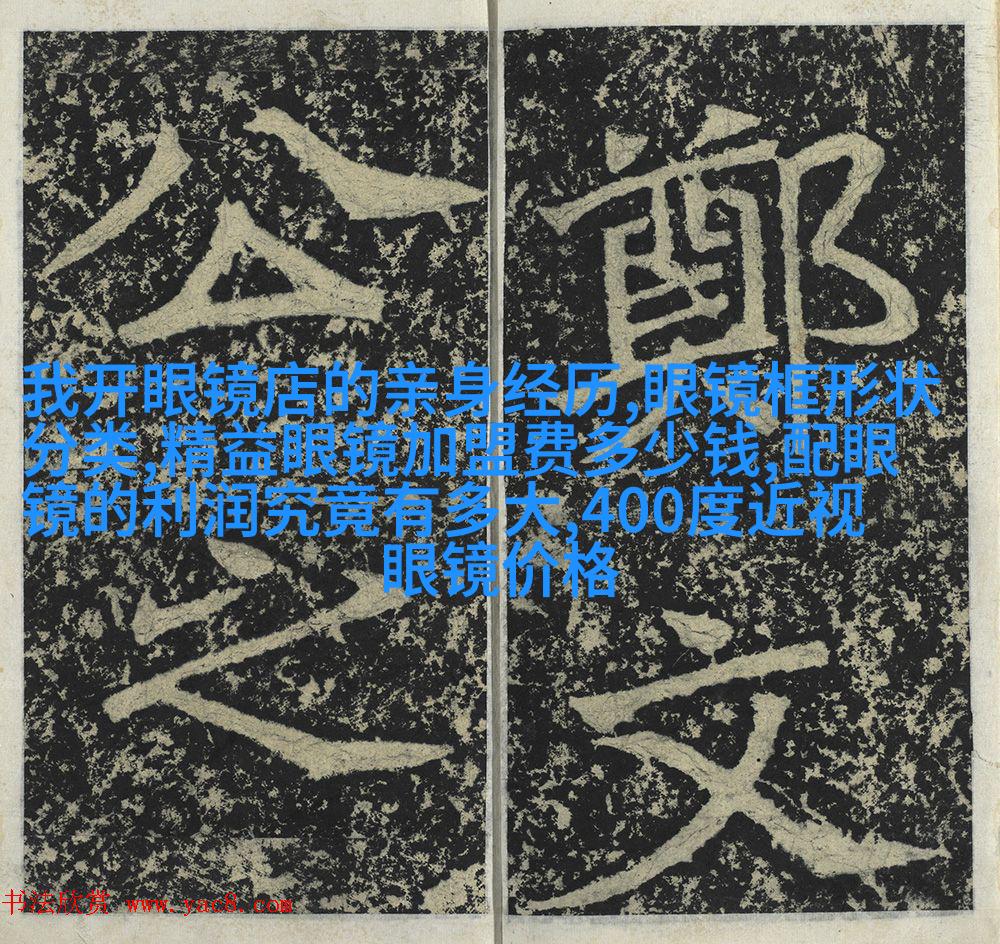 鄭文
公之
我开眼镜店的亲身经历,眼镜框形状
分类,精益眼镜加盟费多少钱,配眼
镜的利润究竟有多大,400度近视
眼镜价格
书法欣赏 www.yac8.com